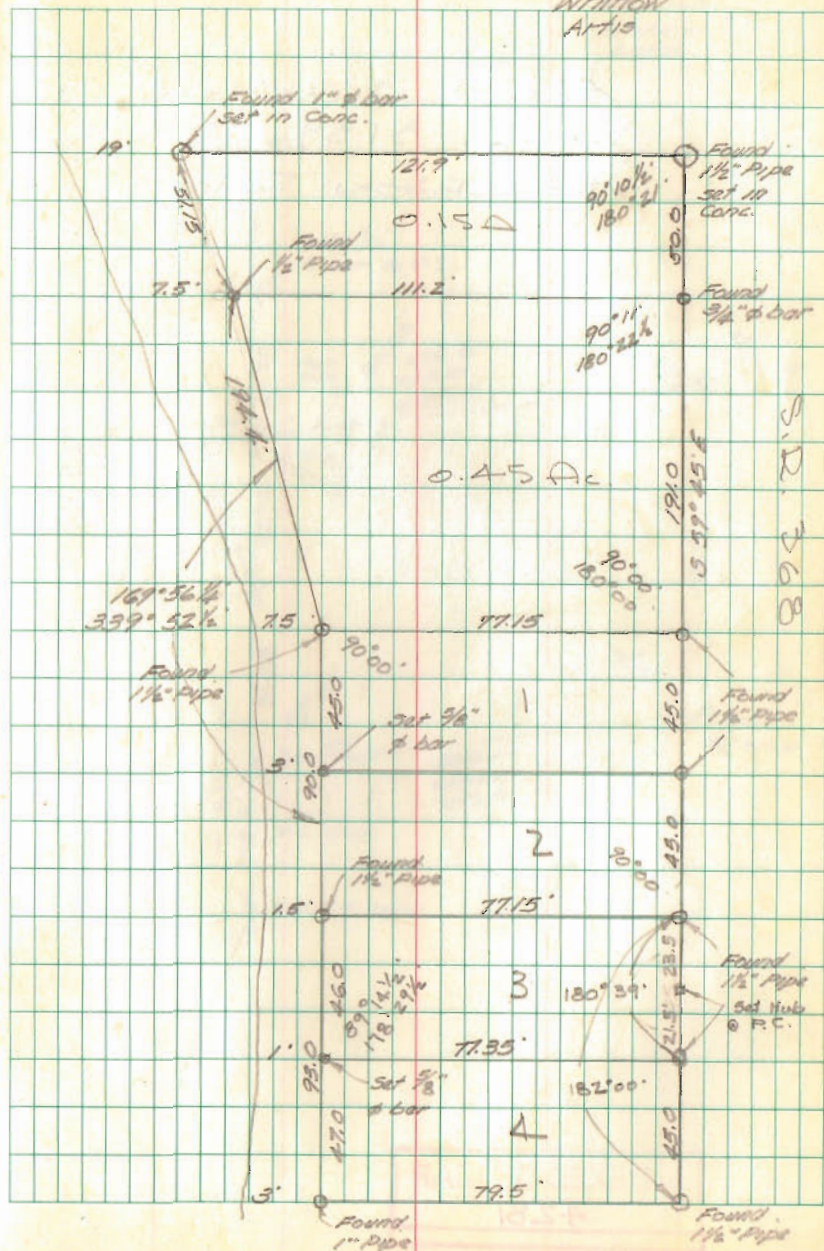 Artis
Found 1" ϕ bar
set in Conc.
19'
121.9'
Found
1½" Pipe
set in
Conc.
90° 10½'
180° 21'
51.15'
0.15 A
50.0
Found
½" Pipe
7.5'
111.2'
Found
3/4" ϕ bar
90° 11'
180° 22½'
194.4'
0.45 Ac.
191.0
S 59° 45' E
S.R. 368
90° 00'
180° 00'
169° 56¼'
339° 52½'
7.5'
77.15
90° 00'
Found
1½" Pipe
45.0
1
45.0
Found
1½" Pipe
Set 5/8"
ϕ bar
3'
90.0
2
45.0
90° 00'
Found
1½" Pipe
1.5'
77.15'
46.0
89° 14½'
178° 29½'
3
180° 39'
21.5' 23.5'
Found
1½" Pipe
Set Hub
@ P.C.
1'
77.35'
93.0
Set 5/8"
ϕ bar
182° 00'
47.0
4
45.0
3'
79.5'
Found
1" Pipe
Found
1½" Pipe